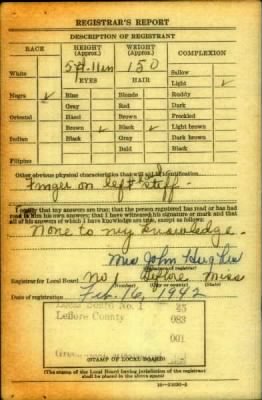 REGISTRAR'S REPORT
DESCRIPTION OF REGISTRANT
RACE HEIGHT (Approx.) WEIGHT (Approx.) COMPLEXION
White 5 ft. 11 in 150 Sallow
EYES HAIR Light ✓
Negro ✓ Blue Blonde Ruddy
Gray Red Dark
Oriental Hazel Brown Freckled
Brown ✓ Black ✓ Light brown
Indian Black Gray Dark brown
Bald Black
Filipino
Other obvious physical characteristics that will aid in identification
Finger on left stiff.
I certify that my answers are true; that the person registered has read or has had
read to him his own answers; that I have witnessed his signature or mark and that
all of his answers of which I have knowledge are true, except as follows:
None to my knowledge.
Mrs John Hughes
(Signature of registrar)
Registrar for Local Board No 1 Leflore Miss
(Number) (City or county) (State)
Date of registration Feb. 16, 1942
Local Board No. 1 45
Leflore County 083
001
(STAMP OF LOCAL BOARD)
(The stamp of the Local Board having jurisdiction of the registrant
shall be placed in the above space)